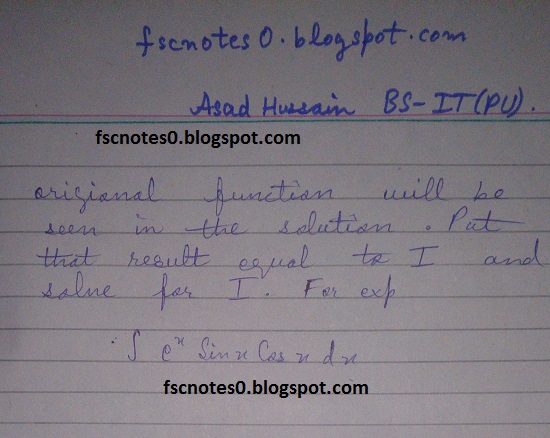 fscnotes0.blogspot.com
Asad Hussain BS-IT(PU).
fscnotes0.blogspot.com
origional function will be
seen in the solution. Put
that result equal to I and
solve for I. For exp
∫ eˣ Sinx Cos x dx
fscnotes0.blogspot.com